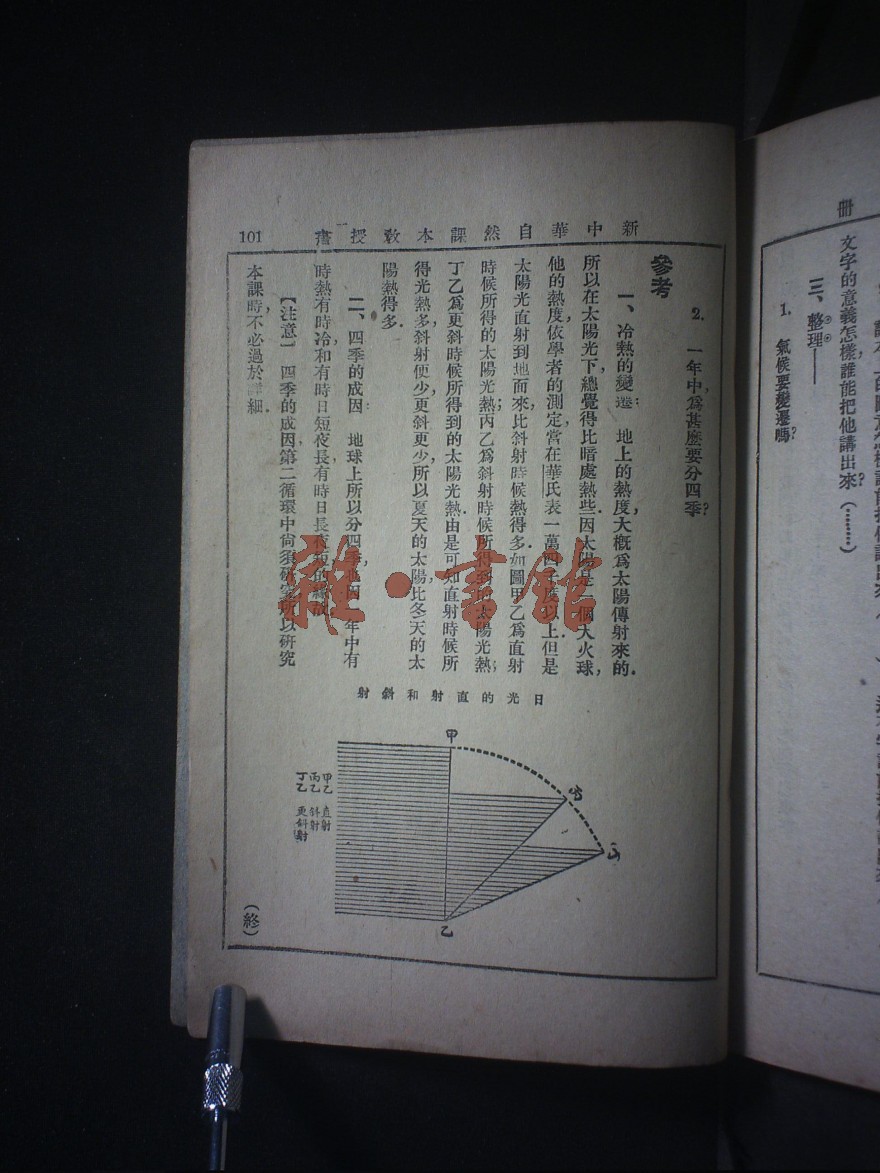 冊
文字的意義怎樣，誰能把他講出來？（………）
三、整理——
1. 氣候要變遷嗎？
新中華自然課本教授書 101
2. 一年中，爲甚麼要分四季？
參考
一、冷熱的變遷： 地上的熱度，大槪爲太陽傳射來的．
所以在太陽光下，總覺得比暗處熱些．因太陽是一個大火球，
他的熱度，依學者的測定，當在華氏表一萬四千度以上．但是
太陽光直射到地面來，比斜射時候熱得多．如圖甲乙爲直射
時候所得的太陽光熱；丙乙爲斜射時候所得到的太陽光熱；
丁乙爲更斜時候所得到的太陽光熱．由是可知直射時候，所
得光熱多，斜射便少，更斜更少．所以夏天的太陽，比冬天的太
陽熱得多．
二、四季的成因： 地球上所以分四季，因一年中有
時熱，有時冷，和有時日短夜長，有時日長夜短的緣故．
【注意】 四季的成因，第二循環中尙須研究，所以研究
本課時，不必過於詳細．
日光的直射和斜射
甲
丙
丁
乙
甲乙 直射
丙乙 斜射
丁乙 更斜射
（終）
雜·書館